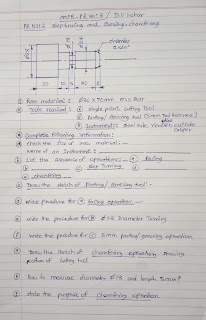 MTS-PRN013 / D.V. Lohar
PRN013 Step turning and Grooving, chamfering
chamfer
2x45°
20 10 5
① Raw material : Ø20 x 75mm M.S Bar
② Tools required : ① single point cutting tool
② Parting/Grooving tool (5.0mm Tool thickness)
③ Instrument : Steel rule, Vernier caliper
③ Complete following information:
ⓐ check the size of raw material:-
Name of an Instrument :
ⓑ List the sequence of operations:- ① facing
② ③ Step Turning ④
⑤ chamfering
ⓒ Draw the sketch of Parting/Grooving tool:-
ⓓ Write procedure for facing operation:-
ⓔ Write the procedure for Ø18 Diameter Turning
ⓕ Write the procedure for 5mm parting/grooving operation
Draw the sketch of chamfering operation showing
position of cutting tool
ⓗ How to measure diameter Ø18 and length 20mm?
State the purpose of chamfering operation